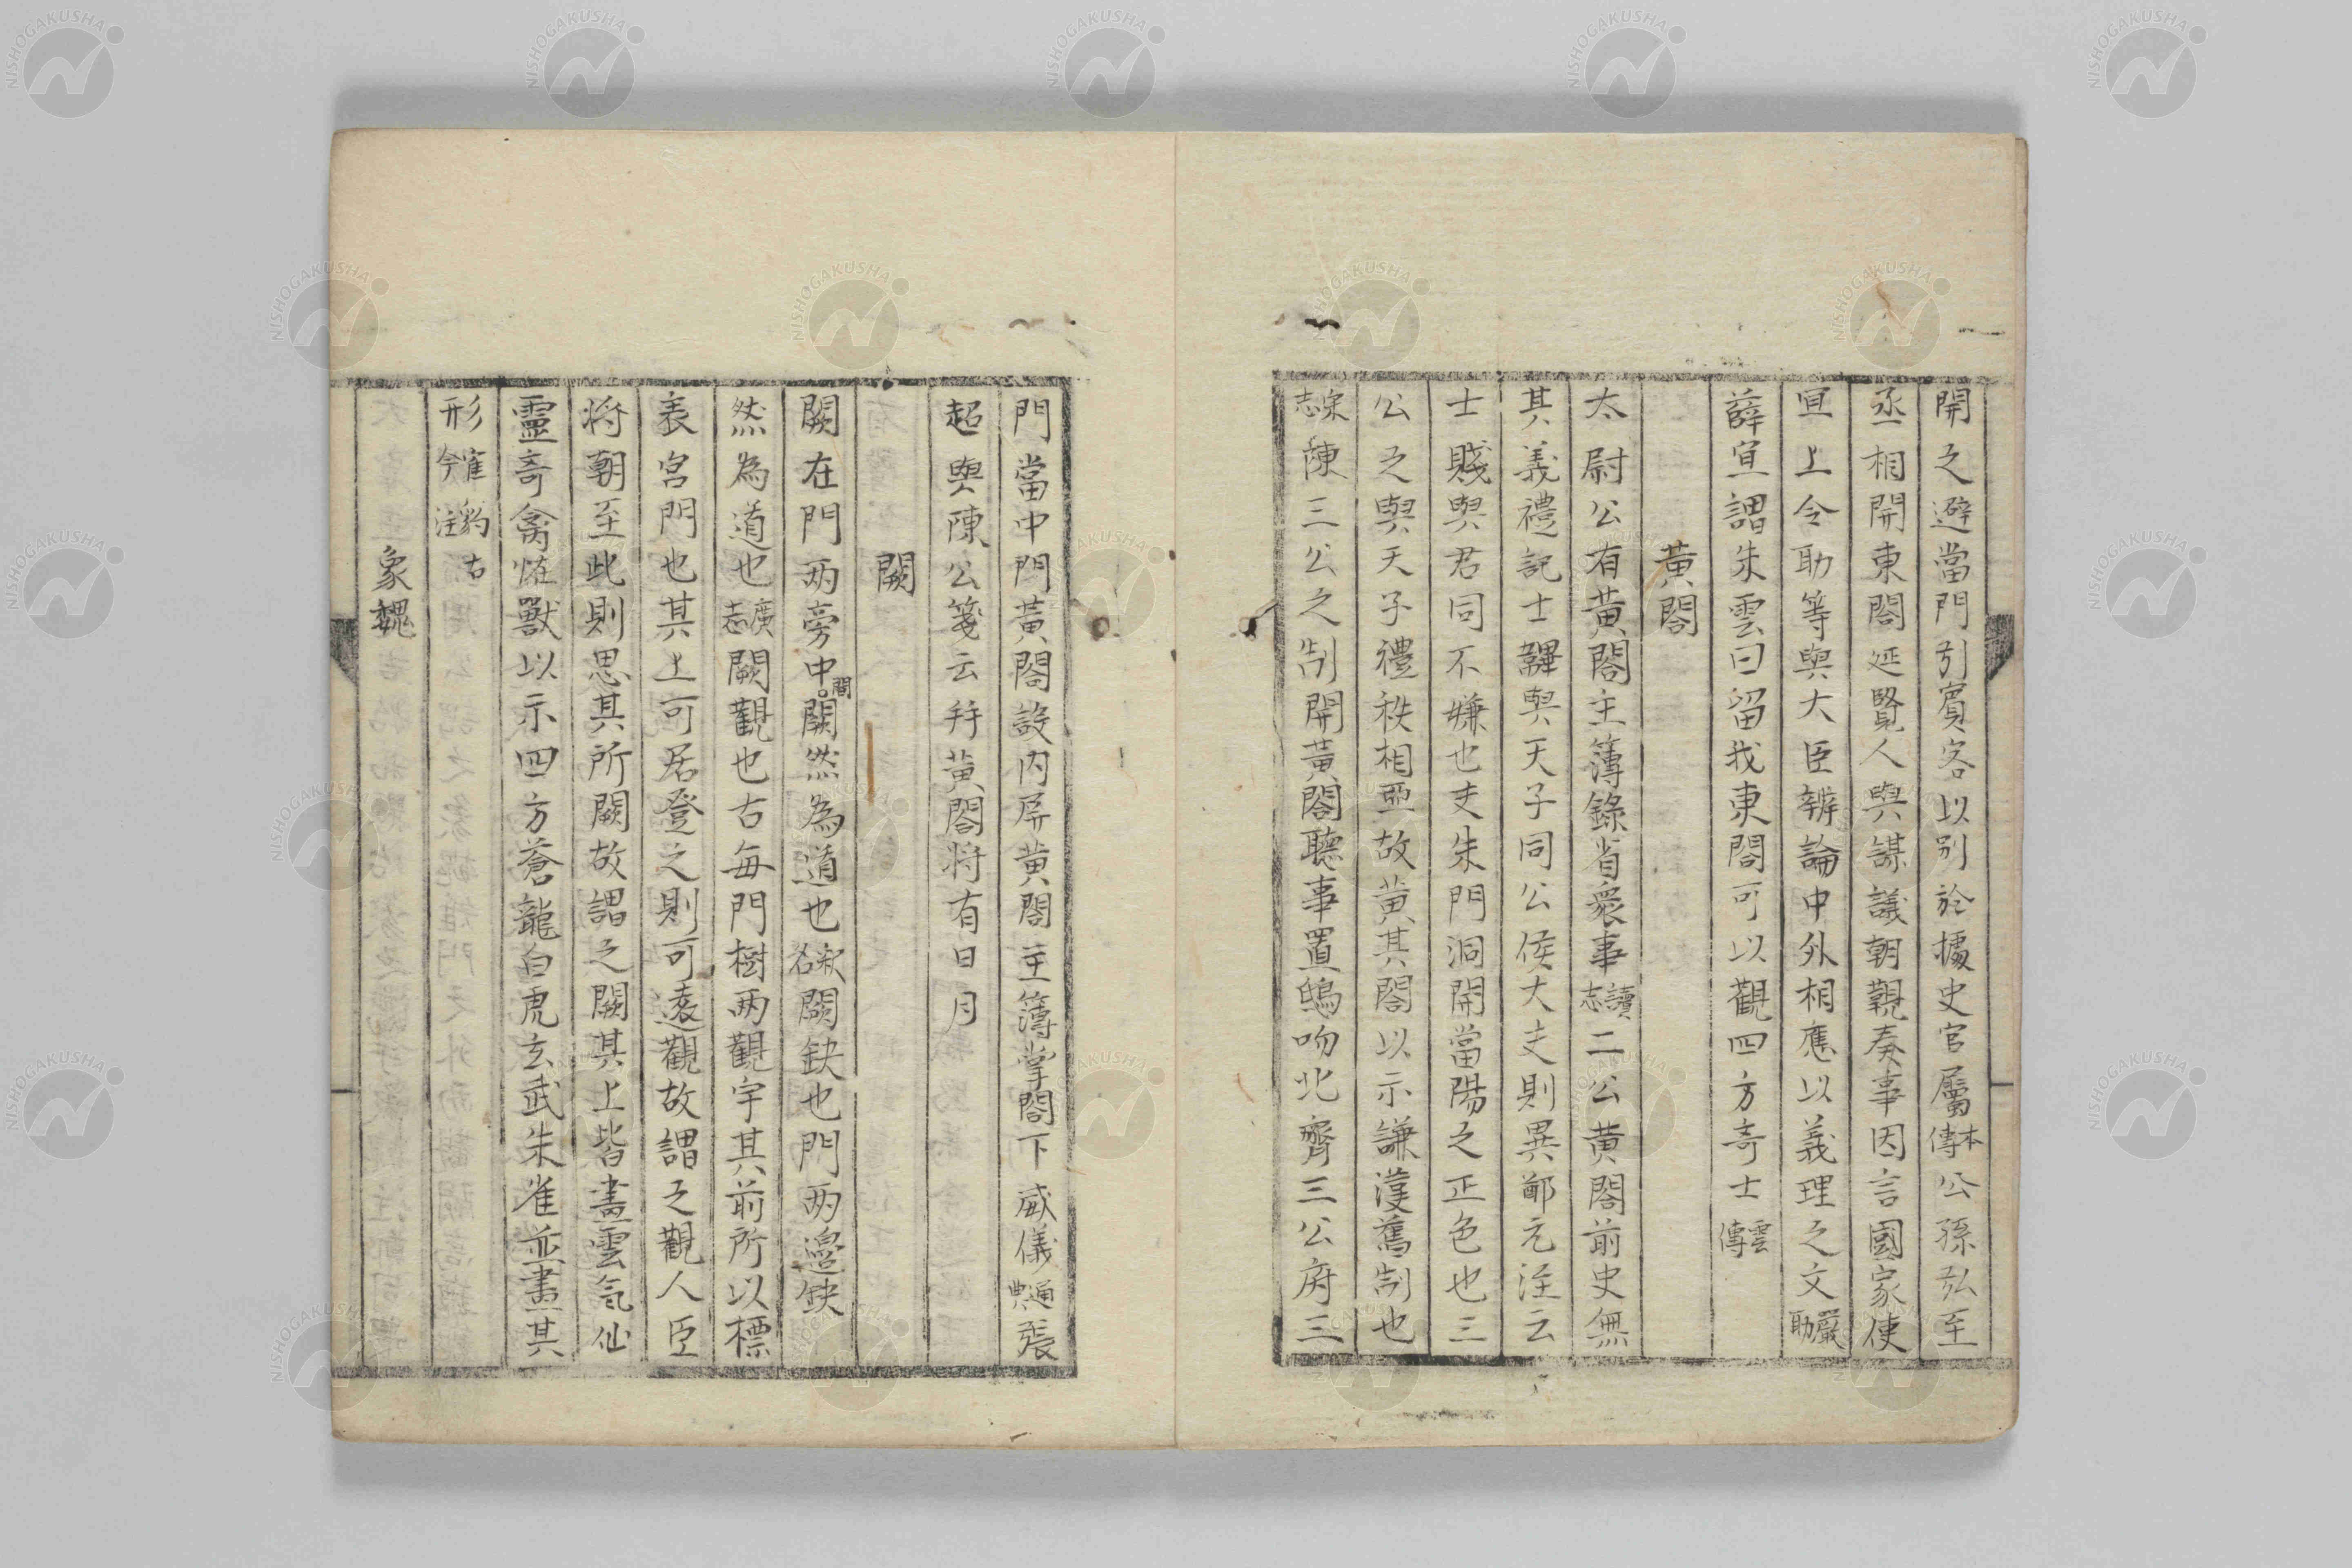 開之避當門引賓客以別於掾史官屬本傳公孫弘至
丞相開東閤延賢人與謀議朝親奏事因言國家使
宜上令助等與大臣辨論中外相應以義理之文嚴助
薛宣謂朱雲曰留我東閤可以觀四方奇士雲傳
黃閤
太尉公有黃閤主簿錄省衆事讀志二公黃閤前史無
其義禮記士韠與天子同公侯大夫則異鄭元注云
士賤與君同不嫌也夫朱門洞開當陽之正色也三
公之與天子禮秩相亞故黃其閤以示謙漢舊制也
宋志陳三公之制開黃閤聽事置鴟吻北齊三公府三
門當中門黃閤設內屏黃閤主簿掌閤下威儀通典張
超與陳公箋云拜黃閤將有日月
闕
闕在門兩旁中間闕然為道也釋名闕缺也門兩邊缺
然為道也廣志闕觀也古每門樹兩觀宇其前所以標
表宮門也其上可居登之則可遠觀故謂之觀人臣
將朝至此則思其所闕故謂之闕其上皆畫雲氣仙
靈奇禽怪獸以示四方蒼龍白虎玄武朱雀並畫其
形崔豹古今注
象魏
NISHOGAKUSHA